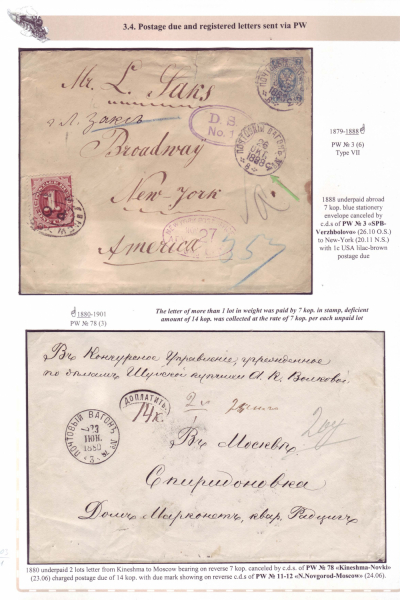 3.4. Postage due and registered letters sent via PW
Mr. L. Saks
Л. Заксъ
D. 8
No. 1
Broadway
New-York
America
27
ПОЧТОВЫЙ ВАГОНЪ
26
1888
1879-1888
PW № 3 (6)
Type VII
1888 underpaid abroad
7 kop. blue stationery
envelope canceled by
c.d.s. of PW № 3 «SPB-
Verzhbolovo» (26.10 O.S.)
to New-York (20.11 N.S.)
with 1c USA lilac-brown
postage due
1880-1901
PW № 78 (3)
The letter of more than 1 lot in weight was paid by 7 kop. in stamp, deficient
amount of 14 kop. was collected at the rate of 7 kop. per each unpaid lot
Въ Конкурсное Управленіе, учрежденное
по дѣламъ Шуйской купчихи А. К. Волковой
ДОПЛАТИТЬ
14к.
ПОЧТОВЫЙ ВАГОНЪ №78
23
ІЮН.
1880
3
Въ Москвѣ
Спиридоновка
Домъ Марконетъ, квар.
1880 underpaid 2 lots letter from Kineshma to Moscow bearing on reverse 7 kop. canceled by c.d.s. of PW № 78 «Kineshma-Novki»
(23.06) charged postage due of 14 kop. with due mark showing on reverse c.d.s of PW № 11-12 «N.Novgorod-Moscow» (24.06).